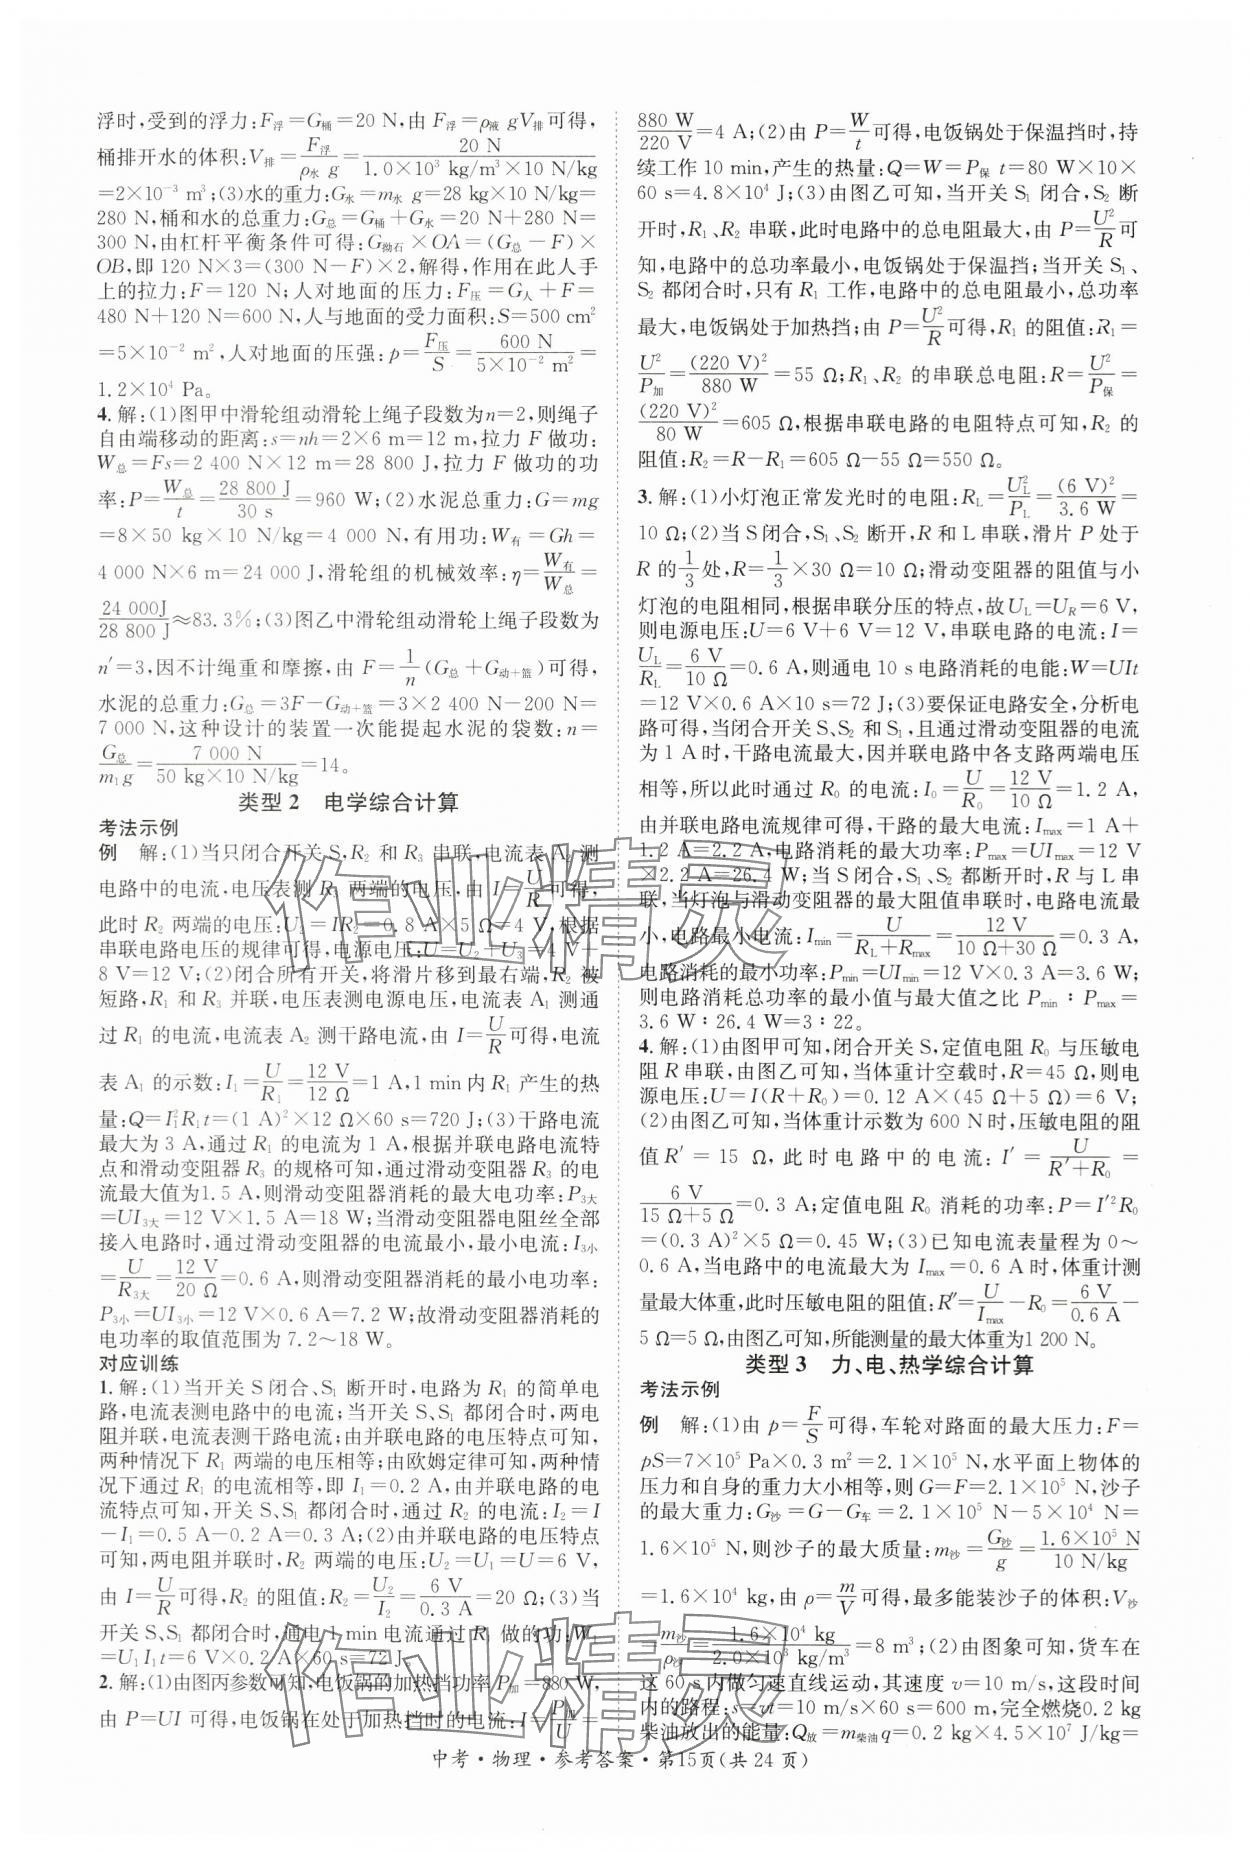 浮时,受到的浮力:F浮=G桶=20 N,由 F浮=ρ液 gV排可得,
桶排开水的体积:V排=F浮/(ρ水 g)=20 N/(1.0×10³ kg/m³×10 N/kg)
=2×10⁻³ m³;(3)水的重力:G水=m水 g=28 kg×10 N/kg=
280 N,桶和水的总重力:G总=G桶+G水=20 N+280 N=
300 N,由杠杆平衡条件可得:G拗石×OA=(G总-F)×
OB,即 120 N×3=(300 N-F)×2,解得,作用在此人手
上的拉力:F=120 N;人对地面的压力:F压=G人+F=
480 N+120 N=600 N,人与地面的受力面积:S=500 cm²
=5×10⁻² m²,人对地面的压强:p=F压/S=600 N/(5×10⁻² m²)=
1.2×10⁴ Pa。
4.解:(1)图甲中滑轮组动滑轮上绳子段数为n=2,则绳子
自由端移动的距离:s=nh=2×6 m=12 m,拉力 F 做功:
W总=Fs=2 400 N×12 m=28 800 J,拉力 F 做功的功
率:P=W总/t=28 800 J/30 s=960 W;(2)水泥总重力:G=mg
=8×50 kg×10 N/kg=4 000 N,有用功:W有=Gh=
4 000 N×6 m=24 000 J,滑轮组的机械效率:η=W有/W总=
24 000J/28 800 J≈83.3%;(3)图乙中滑轮组动滑轮上绳子段数为
n′=3,因不计绳重和摩擦,由 F=1/n(G总+G动+篮)可得,
水泥的总重力:G总=3F-G动+篮=3×2 400 N-200 N=
7 000 N,这种设计的装置一次能提起水泥的袋数:n=
G总/(m₁g)=7 000 N/(50 kg×10 N/kg)=14。
类型 2 电学综合计算
考法示例
例 解:(1)当只闭合开关 S,R₂ 和 R₃ 串联,电流表 A₂ 测
电路中的电流,电压表测 R₃ 两端的电压,由 I=U/R可得,
此时 R₂ 两端的电压:U₂=IR₂=0.8 A×5 Ω=4 V,根据
串联电路电压的规律可得,电源电压:U=U₂+U₃=4 V+
8 V=12 V;(2)闭合所有开关,将滑片移到最右端,R₂ 被
短路,R₁ 和 R₃ 并联,电压表测电源电压,电流表 A₁ 测通
过 R₁ 的电流,电流表 A₂ 测干路电流,由 I=U/R可得,电流
表 A₁ 的示数:I₁=U/R₁=12 V/12 Ω=1 A,1 min内 R₁ 产生的热
量:Q=I₁²R₁t=(1 A)²×12 Ω×60 s=720 J;(3)干路电流
最大为 3 A,通过 R₁ 的电流为 1 A,根据并联电路电流特
点和滑动变阻器 R₃ 的规格可知,通过滑动变阻器 R₃ 的电
流最大值为1.5 A,则滑动变阻器消耗的最大电功率:P3大
=UI3大=12 V×1.5 A=18 W;当滑动变阻器电阻丝全部
接入电路时,通过滑动变阻器的电流最小,最小电流:I3小
=U/R3大=12 V/20 Ω=0.6 A,则滑动变阻器消耗的最小电功率:
P3小=UI3小=12 V×0.6 A=7.2 W;故滑动变阻器消耗的
电功率的取值范围为 7.2~18 W。
对应训练
1.解:(1)当开关 S闭合、S₁ 断开时,电路为 R₁ 的简单电
路,电流表测电路中的电流;当开关 S、S₁ 都闭合时,两电
阻并联,电流表测干路电流;由并联电路的电压特点可知,
两种情况下 R₁ 两端的电压相等;由欧姆定律可知,两种
情况下通过 R₁ 的电流相等,即 I₁=0.2 A,由并联电路的电
流特点可知,开关 S、S₁ 都闭合时,通过 R₂ 的电流:I₂=I
-I₁=0.5 A-0.2 A=0.3 A;(2)由并联电路的电压特点
可知,两电阻并联时,R₂ 两端的电压:U₂=U₁=U=6 V,
由 I=U/R可得,R₂ 的阻值:R₂=U₂/I₂=6 V/0.3 A=20 Ω;(3)当
开关 S、S₁ 都闭合时,通电 1 min 电流通过 R₁ 做的功:W₁
=U₁I₁t=6 V×0.2 A×60 s=72 J
2.解:(1)由图丙参数可知,电饭锅的加热挡功率 P加=880 W,
由 P=UI 可得,电饭锅在处于加热挡时的电流:I=P加/U=
880 W/220 V=4 A;(2)由 P=W/t可得,电饭锅处于保温挡时,持
续工作 10 min,产生的热量:Q=W=P保 t=80 W×10×
60 s=4.8×10⁴ J;(3)由图乙可知,当开关 S₁ 闭合,S₂ 断
开时,R₁、R₂ 串联,此时电路中的总电阻最大,由 P=U²/R可
知,电路中的总功率最小,电饭锅处于保温挡;当开关 S₁、
S₂ 都闭合时,只有 R₁ 工作,电路中的总电阻最小,总功率
最大,电饭锅处于加热挡;由 P=U²/R可得,R₁ 的阻值:R₁=
U²/P加=(220 V)²/880 W=55 Ω;R₁、R₂ 的串联总电阻:R=U²/P保=
(220 V)²/80 W=605 Ω,根据串联电路的电阻特点可知,R₂ 的
阻值:R₂=R-R₁=605 Ω-55 Ω=550 Ω。
3.解:(1)小灯泡正常发光时的电阻:RL=UL²/PL=(6 V)²/3.6 W=
10 Ω;(2)当 S闭合,S₁、S₂ 断开,R 和 L 串联,滑片 P 处于
R 的1/3处,R=1/3×30 Ω=10 Ω;滑动变阻器的阻值与小
灯泡的电阻相同,根据串联分压的特点,故 UL=UR=6 V,
则电源电压:U=6 V+6 V=12 V,串联电路的电流:I=
UL/RL=6 V/10 Ω=0.6 A,则通电 10 s 电路消耗的电能:W=UIt
=12 V×0.6 A×10 s=72 J;(3)要保证电路安全,分析电
路可得,当闭合开关 S、S₂ 和 S₁,且通过滑动变阻器的电流
为 1 A时,干路电流最大,因并联电路中各支路两端电压
相等,所以此时通过 R₀ 的电流:I₀=U/R₀=12 V/10 Ω=1.2 A,
由并联电路电流规律可得,干路的最大电流:Imax=1 A+
1.2 A=2.2 A,电路消耗的最大功率:Pmax=UImax=12 V
×2.2 A=26.4 W;当 S闭合,S₁、S₂ 都断开时,R 与 L 串
联,当灯泡与滑动变阻器的最大阻值串联时,电路电流最
小,电路最小电流:Imin=U/(RL+Rmax)=12 V/(10 Ω+30 Ω)=0.3 A,
电路消耗的最小功率:Pmin=UImin=12 V×0.3 A=3.6 W;
则电路消耗总功率的最小值与最大值之比 Pmin∶Pmax=
3.6 W∶26.4 W=3∶22。
4.解:(1)由图甲可知,闭合开关 S,定值电阻 R₀ 与压敏电
阻 R 串联,由图乙可知,当体重计空载时,R=45 Ω,则电
源电压:U=I(R+R₀)=0.12 A×(45 Ω+5 Ω)=6 V;
(2)由图乙可知,当体重计示数为 600 N时,压敏电阻的阻
值 R′=15 Ω,此时电路中的电流:I′=U/(R′+R₀)=
6 V/(15 Ω+5 Ω)=0.3 A;定值电阻 R₀ 消耗的功率:P=I′²R₀
=(0.3 A)²×5 Ω=0.45 W;(3)已知电流表量程为 0~
0.6 A,当电路中的电流最大为 Imax=0.6 A时,体重计测
量最大体重,此时压敏电阻的阻值:R″=U/Imax-R₀=6 V/0.6 A-
5 Ω=5 Ω,由图乙可知,所能测量的最大体重为1 200 N。
类型 3 力、电、热学综合计算
考法示例
例 解:(1)由 p=F/S可得,车轮对路面的最大压力:F=
pS=7×10⁵ Pa×0.3 m²=2.1×10⁵ N,水平面上物体的
压力和自身的重力大小相等,则 G=F=2.1×10⁵ N,沙子
的最大重力:G沙=G-G车=2.1×10⁵ N-5×10⁴ N=
1.6×10⁵ N,则沙子的最大质量:m沙=G沙/g=1.6×10⁵ N/10 N/kg
=1.6×10⁴ kg,由 ρ=m/V可得,最多能装沙子的体积:V沙
=m沙/ρ沙=1.6×10⁴ kg/2.0×10³ kg/m³=8 m³;(2)由图象可知,货车在
这 60 s内做匀速直线运动,其速度 v=10 m/s,这段时间
内的路程:s=vt=10 m/s×60 s=600 m,完全燃烧0.2 kg
柴油放出的能量:Q放=m柴油q=0.2 kg×4.5×10⁷ J/kg=
中考·物理·参考答案·第15页(共 24 页)
作业精灵
作业精灵